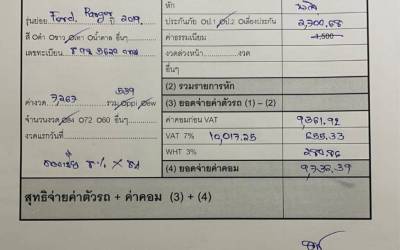 รุ่นย่อย Ford. Ranger ปี 2019.
ประกันภัย ป1 ป2 เบี้ยประกัน 2,700.68
สี ดำ ขาว เทา น้ำตาล อื่นๆ
ค่าธรรมเนียม 1,500
เลขทะเบียน
งวดล่วงหน้า งวด
อื่นๆ
(2) รวมรายการหัก
ค่างวด 7,267 รวม ppi ew
(3) ยอดจ่ายค่าตัวรถ (1) – (2)
จำนวนงวด 84 072 60 อื่นๆ
ค่าคอมก่อน VAT 9361.92
งวดแรกวันที่
VAT 7% 10,017.25 655.33
WHT 3% 280.86
(4) ยอดจ่ายค่าคอม 9,736.39
สุทธิจ่ายค่าตัวรถ + ค่าคอม (3) + (4)